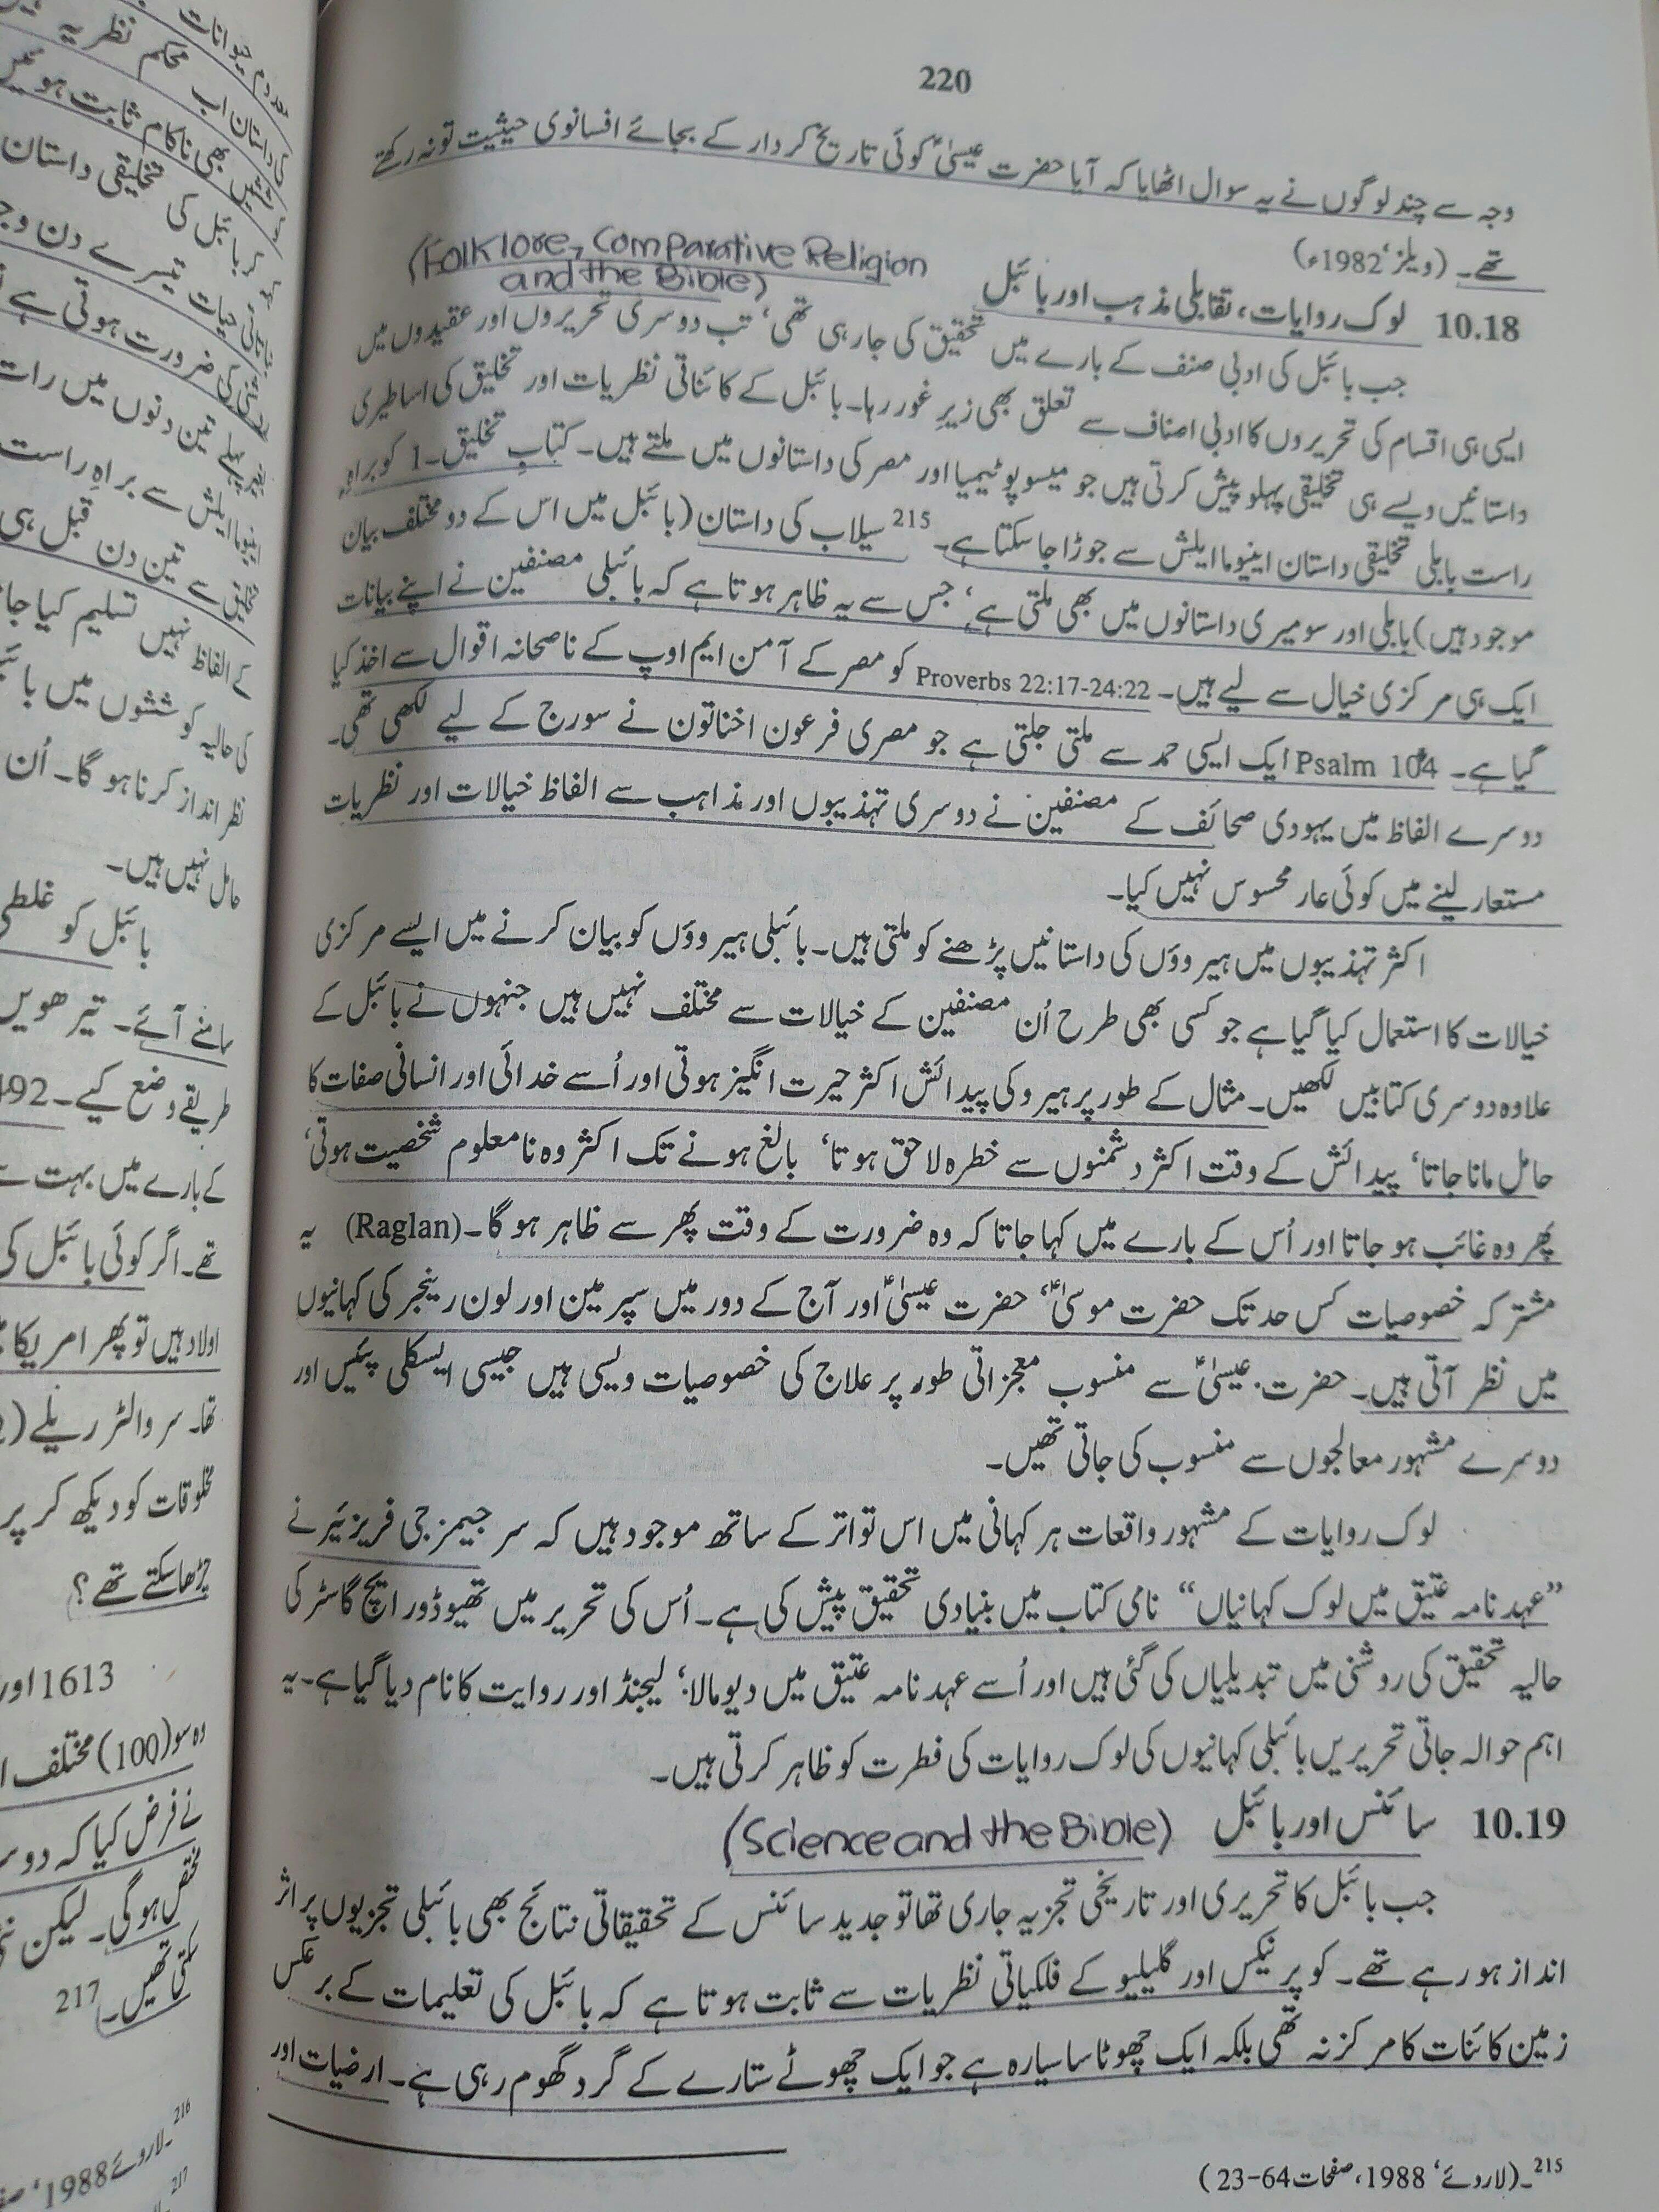 220
وجہ سے چند لوگوں نے یہ سوال اٹھایا کہ آیا حضرت عیسیٰؑ کوئی تاریخ کردار کے بجائے افسانوی حیثیت تو نہ رکھتے
تھے۔ (ویلز‘ 1982ء)
10.18 لوک روایات، تقابلی مذہب اور بائبل (Folklore, Comparative Religion
and the Bible)
جب بائبل کی ادبی صنف کے بارے میں تحقیق کی جارہی تھی‘ تب دوسری تحریروں اور عقیدوں میں
ایسی ہی اقسام کی تحریروں کا ادبی اصناف سے تعلق بھی زیرِ غور رہا۔ بائبل کے کائناتی نظریات اور تخلیق کی اساطیری
داستانیں ویسے ہی تخلیقی پہلو پیش کرتی ہیں جو میسوپوٹیمیا اور مصر کی داستانوں میں ملتے ہیں۔ کتابِ تخلیق۔1 کو براہِ
راست بابلی تخلیقی داستان اینیوما ایلش سے جوڑا جا سکتا ہے۔215 سیلاب کی داستان (بائبل میں اس کے دو مختلف بیان
موجود ہیں) بابلی اور سومیری داستانوں میں بھی ملتی ہے‘ جس سے یہ ظاہر ہوتا ہے کہ بائبلی مصنفین نے اپنے بیانات
ایک ہی مرکزی خیال سے لیے ہیں۔ Proverbs 22:17-24:22 کو مصر کے آمن ایم اوپ کے ناصحانہ اقوال سے اخذ کیا
گیا ہے۔ Psalm 104 ایک ایسی حمد سے ملتی جلتی ہے جو مصری فرعون اخناتون نے سورج کے لیے لکھی تھی۔
دوسرے الفاظ میں یہودی صحائف کے مصنفین نے دوسری تہذیبوں اور مذاہب سے الفاظ خیالات اور نظریات
مستعار لینے میں کوئی عار محسوس نہیں کیا۔
اکثر تہذیبوں میں ہیروؤں کی داستانیں پڑھنے کو ملتی ہیں۔ بائبلی ہیروؤں کو بیان کرنے میں ایسے مرکزی
خیالات کا استعمال کیا گیا ہے جو کسی بھی طرح اُن مصنفین کے خیالات سے مختلف نہیں ہیں جنہوں نے بائبل کے
علاوہ دوسری کتابیں لکھیں۔ مثال کے طور پر ہیرو کی پیدائش اکثر حیرت انگیز ہوتی اور اُسے خدائی اور انسانی صفات کا
حامل مانا جاتا‘ پیدائش کے وقت اکثر دشمنوں سے خطرہ لاحق ہوتا‘ بالغ ہونے تک اکثر وہ نا معلوم شخصیت ہوتی‘
پھر وہ غائب ہو جاتا اور اُس کے بارے میں کہا جاتا کہ وہ ضرورت کے وقت پھر سے ظاہر ہو گا۔ (Raglan) یہ
مشترکہ خصوصیات کس حد تک حضرت موسیٰؑ‘ حضرت عیسیٰؑ اور آج کے دور میں سپر مین اور لون رینجر کی کہانیوں
میں نظر آتی ہیں۔ حضرت عیسیٰؑ سے منسوب معجزاتی طور پر علاج کی خصوصیات ویسی ہیں جیسی ایسکلی پیئس اور
دوسرے مشہور معالجوں سے منسوب کی جاتی تھیں۔
لوک روایات کے مشہور واقعات ہر کہانی میں اس تواتر کے ساتھ موجود ہیں کہ سر جیمز جی فریزئیر نے
”عہد نامہ عتیق میں لوک کہانیاں“ نامی کتاب میں بنیادی تحقیق پیش کی ہے۔ اُس کی تحریر میں تھیوڈور ایچ گاسٹر کی
حالیہ تحقیق کی روشنی میں تبدیلیاں کی گئی ہیں اور اُسے عہد نامہ عتیق میں دیومالا‘ لیجنڈ اور روایت کا نام دیا گیا ہے۔ یہ
اہم حوالہ جاتی تحریریں بائبلی کہانیوں کی لوک روایات کی فطرت کو ظاہر کرتی ہیں۔
10.19 سائنس اور بائبل (Science and the Bible)
جب بائبل کا تحریری اور تاریخی تجزیہ جاری تھا تو جدید سائنس کے تحقیقاتی نتائج بھی بائبلی تجزیوں پر اثر
انداز ہو رہے تھے۔ کوپرنیکس اور گلیلیو کے فلکیاتی نظریات سے ثابت ہوتا ہے کہ بائبل کی تعلیمات کے برعکس
زمین کائنات کا مرکز نہ تھی بلکہ ایک چھوٹا سا سیارہ ہے جو ایک چھوٹے ستارے کے گرد گھوم رہی ہے۔ ارضیات اور
215۔ (لاروئے‘ 1988، صفحات 64-23)
حیوانات
داستان اب محکم نظریہ
بھی ناکام ثابت ہوئیں
کر بائبل کی تخلیقی داستان
حیات تیسرے دن وجود
کی ضرورت ہوئی ہے
پہلے تین دنوں میں رات
ایلش سے براہِ راست
سے تین دن قبل ہی
کے الفاظ نہیں تسلیم کیا جا
کی حالیہ کوششوں میں
نظر انداز کرنا ہو گا۔ اُن
حامل نہیں ہیں۔
بائبل کو غلطی
سامنے آئے۔ تیرھویں
طریقے وضع کیے۔ 492
کے بارے میں بہت سے
تھے۔ اگر کوئی بائبل کی
اولاد ہیں تو پھر امریکا
تھا۔ سر والٹر ریلے
مخلوقات کو دیکھ کر پر
چڑھا سکتے تھے؟
1613 اور
وہ سو (100) مختلف
نے فرض کیا کہ دو
مختص ہو گی۔ لیکن
سکتی تھیں۔217
216۔ لاروئے 1988‘
217